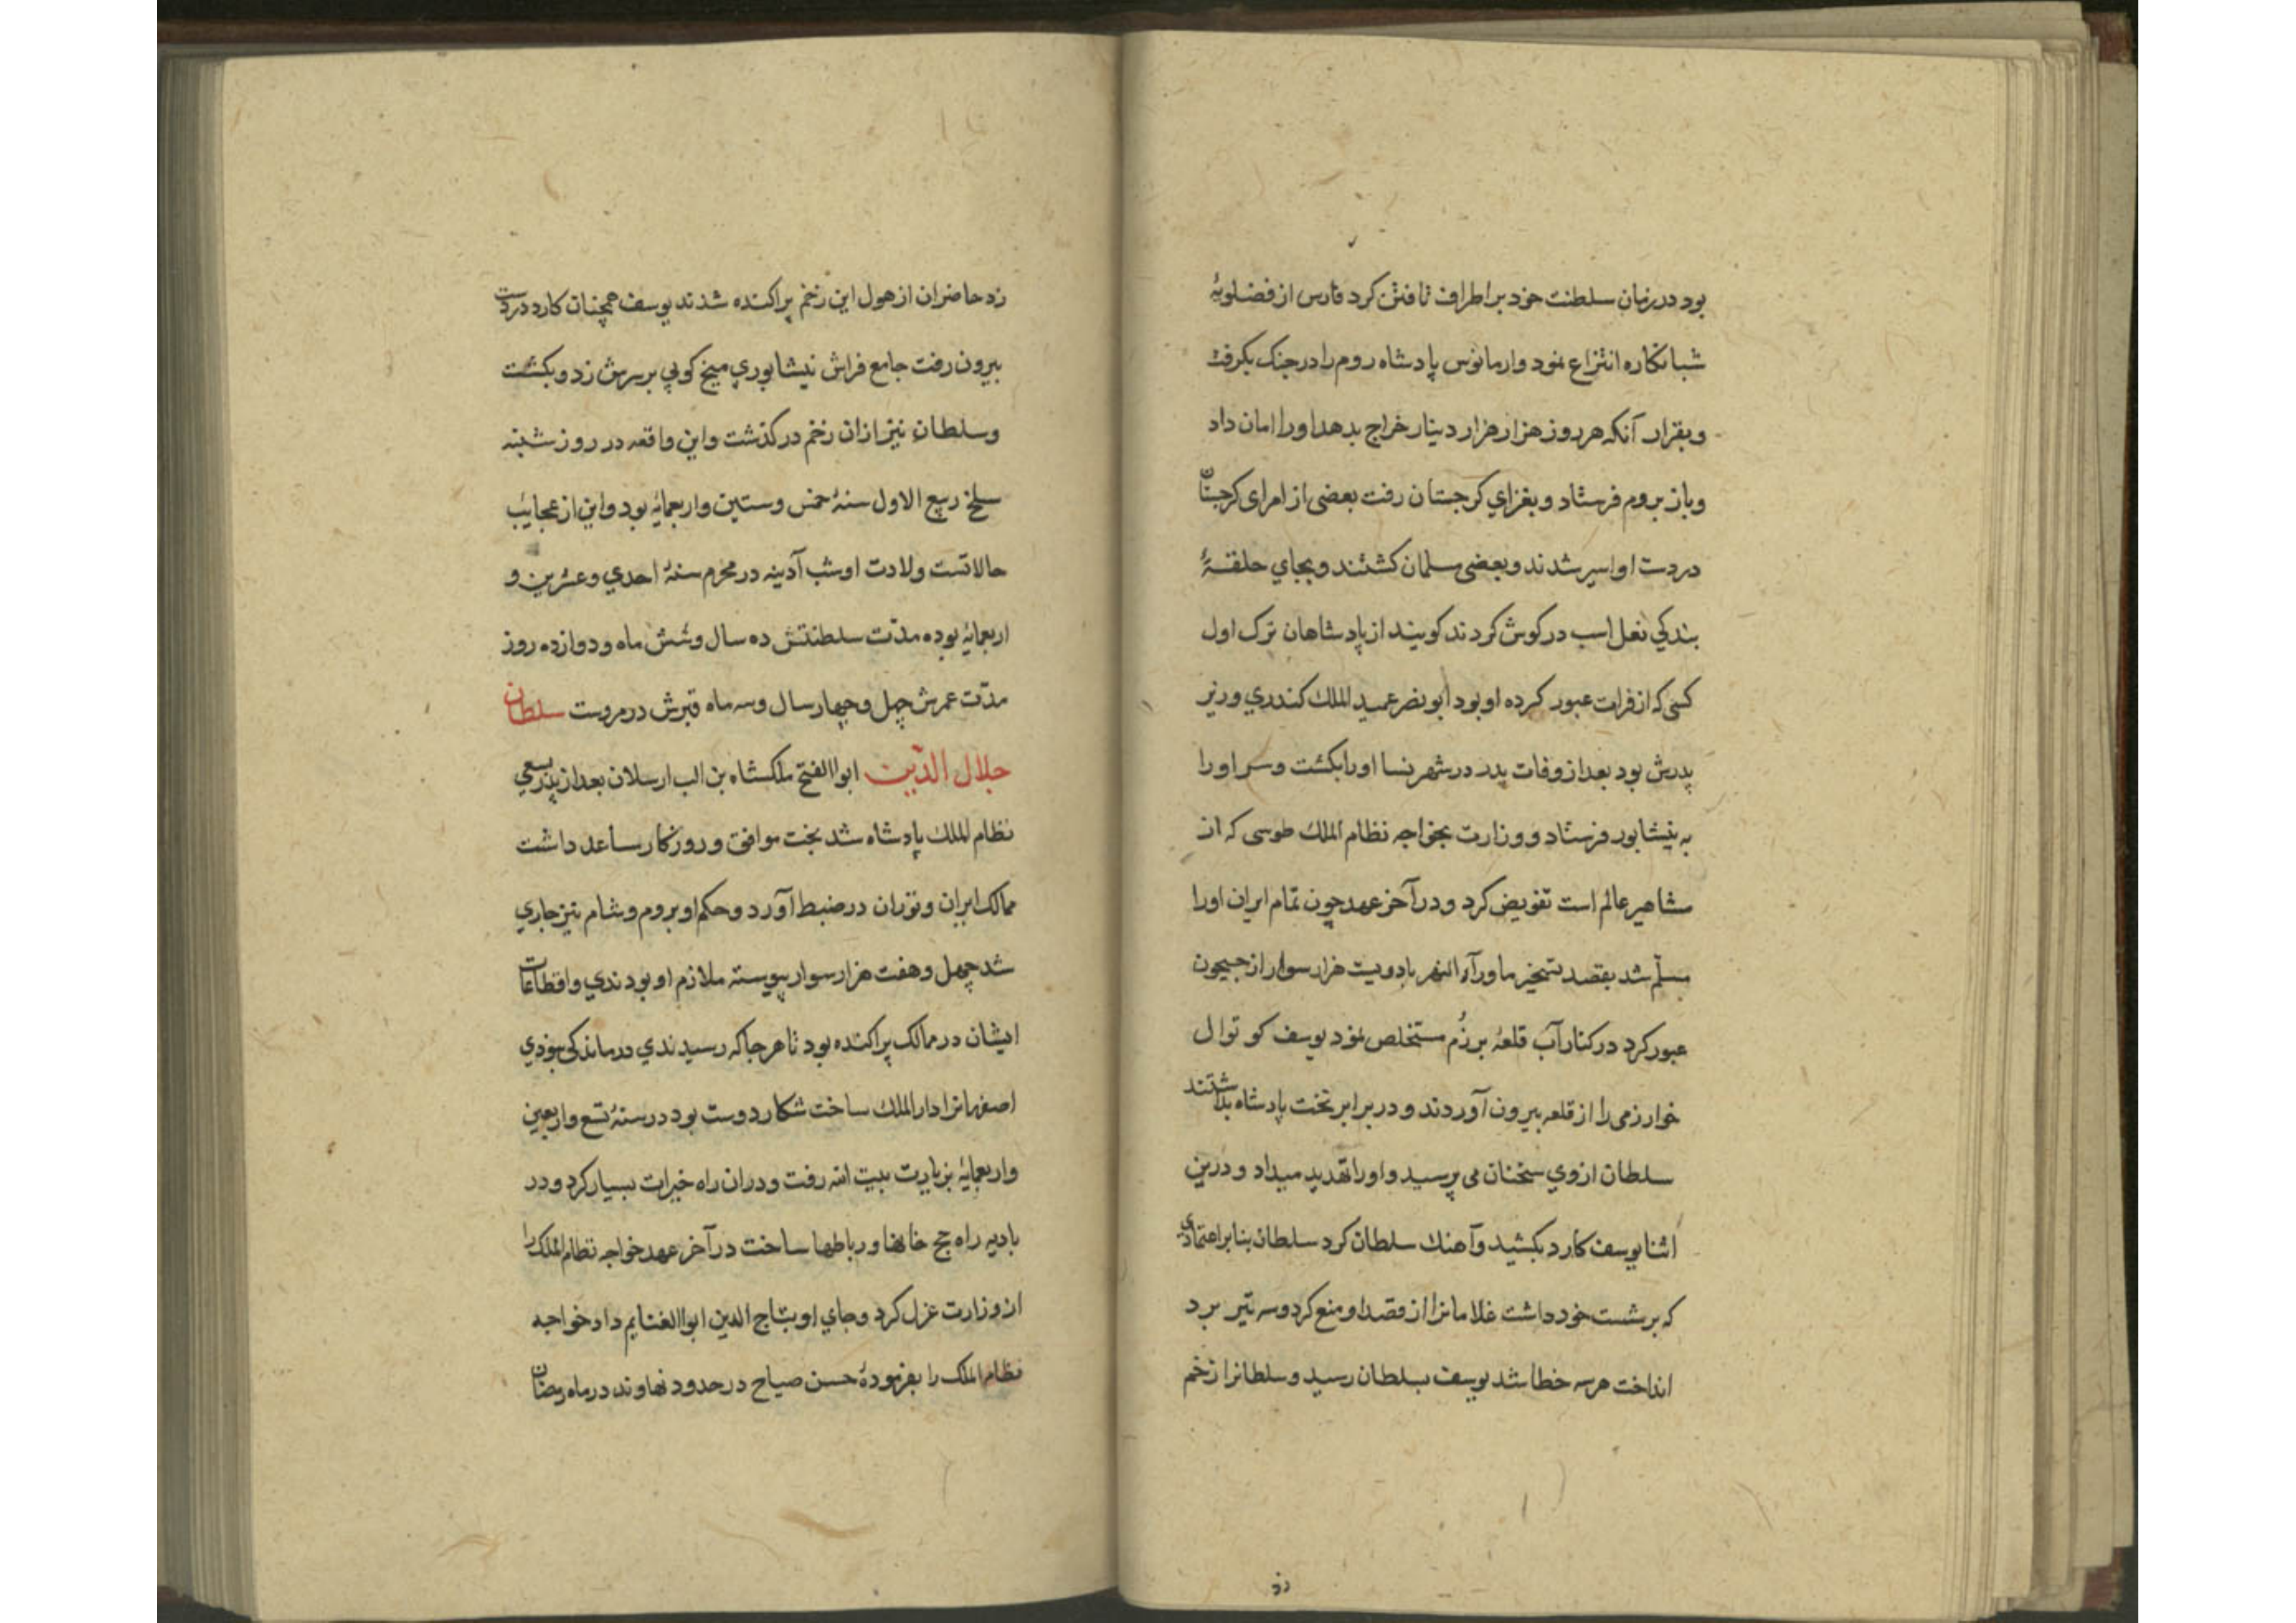 بود در زمان سلطنت خود بر اطراف تاختن کرد فارس از فضلویهٔ
شبانکاره انتزاع نمود وارمانوس پادشاه روم را در جنک بکرفت
وبقرار آنکه هر روز هزار هزار دینار خراج بدهد اورا امان داد
وباز بروم فرستاد وبغزای کرجستان رفت بعضی از امرای کرجستان
در دست او اسیر شدند وبعضی مسلمان کشتند وبجای حلقهٔ
بندکی نعل اسب در کوش کردند کویند از پادشاهان ترک اول
کسی که از فرات عبور کرده او بود ابونصر عمید الملک کندری وزیر
پدرش بود بعد از وفات پدر در شهر نسا اورا بکشت وسر اورا
به نیشابور فرستاد ووزارت بخواجه نظام الملک طوسی که از
مشاهیر عالم است تفویض کرد ودر آخر عهد چون تمام ایران اورا
مسلّم شد بقصد تسخیر ماورآء النهر با دویست هزار سوار از جیحون
عبور کرد در کنار آب قلعهٔ برزُم مستخلص نمود یوسف کوتوال
خوارزمی را از قلعه بیرون آوردند ودر برابر تخت پادشاه بداشتند
سلطان از وی سخنان می پرسید واورا تهدید میداد ودرین
اثنا یوسف کارد بکشید وآهنک سلطان کرد سلطان بنابر اعتمادی
که بر شست خود داشت غلامانرا از قصد او منع کرد وسه تیر برد
انداخت هر سه خطا شد یوسف بسلطان رسید وسلطانرا زخم
زد
زد حاضران از هول این زخم پراکنده شدند یوسف همچنان کارد در دست
بیرون رفت جامع فراش نیشابوری میخ کوبی بر سرش زد وبکشت
وسلطان نیز ازان زخم در کذشت واین واقعه در روز شنبه
سلخ ربیع الاول سنهٔ خمس وستین واربعمایهٔ بود واین از عجایب
حالاتست ولادت او شب آدینه در محرم سنهٔ احدی وعشرین و
اربعمایهٔ بوده مدّت سلطنتش ده سال وشش ماه ودوازده روز
مدّت عمرش چهل وچهار سال وسه ماه قبرش در مروست سلطان
جلال الدّین ابوالفتح ملکشاه بن الب ارسلان بعد از پدر بسعی
نظام الملک پادشاه شد بخت موافق وروزکار مساعد داشت
ممالک ایران وتوران در ضبط آورد وحکم او بروم وشام نیز جاری
شد چهل وهفت هزار سوار پیوسته ملازم او بودندی واقطاعات
ایشان در ممالک پراکنده بود تا هر جا که رسیدندی درماندکی نبودی
اصفهانرا دار الملک ساخت شکار دوست بود در سنهٔ تسع واربعین
واربعمایهٔ بزیارت بیت الله رفت ودران راه خیرات بسیار کرد ودر
بادیه راه حج خانها ورباطها ساخت در آخر عهد خواجه نظام الملک را
از وزارت عزل کرد وجای او بتاج الدین ابوالغنایم داد خواجه
نظام الملک را بفرمودهٔ حسن صباح در حدود نهاوند در ماه رمضان